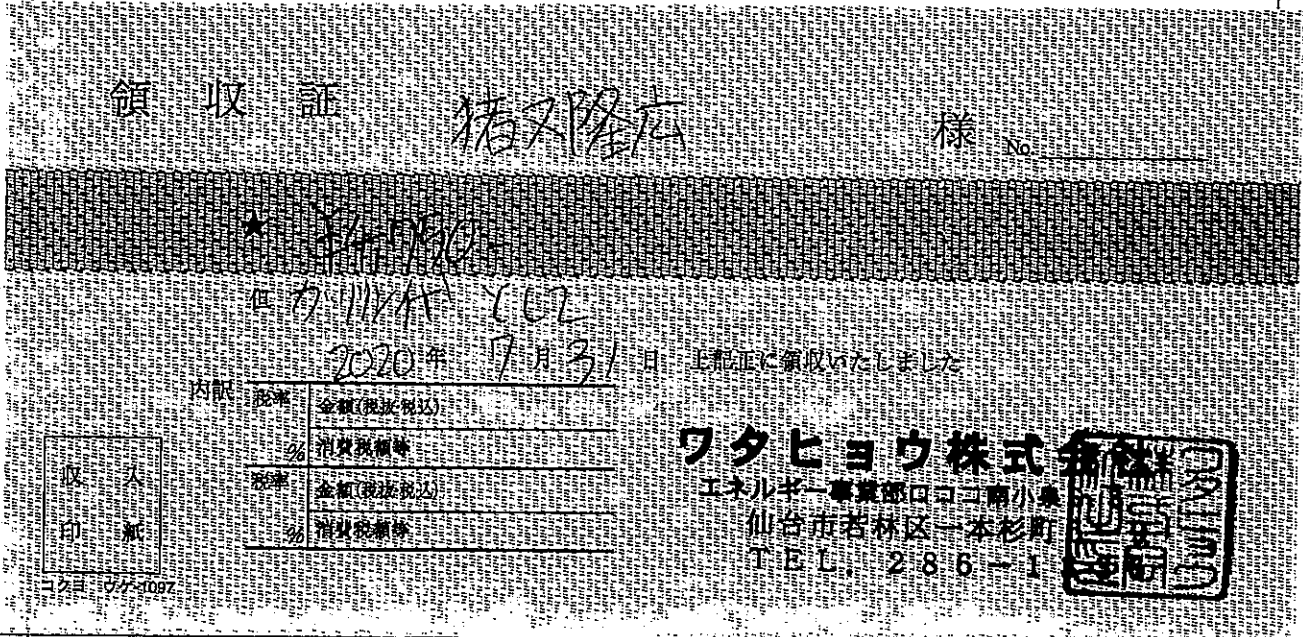 領収証 猪又隆広 様 No.
★
但 ガソリン代 として
2020年 7月31日 上記正に領収いたしました
内訳 税率 金額(税抜・税込)
% 消費税額等
税率 金額(税抜・税込)
% 消費税額等
収入
印紙
コクヨ ウケ-1097
ワタヒョウ株式会社
エネルギー事業部ロココ南小泉
仙台市若林区一本杉町
TEL. 286-1